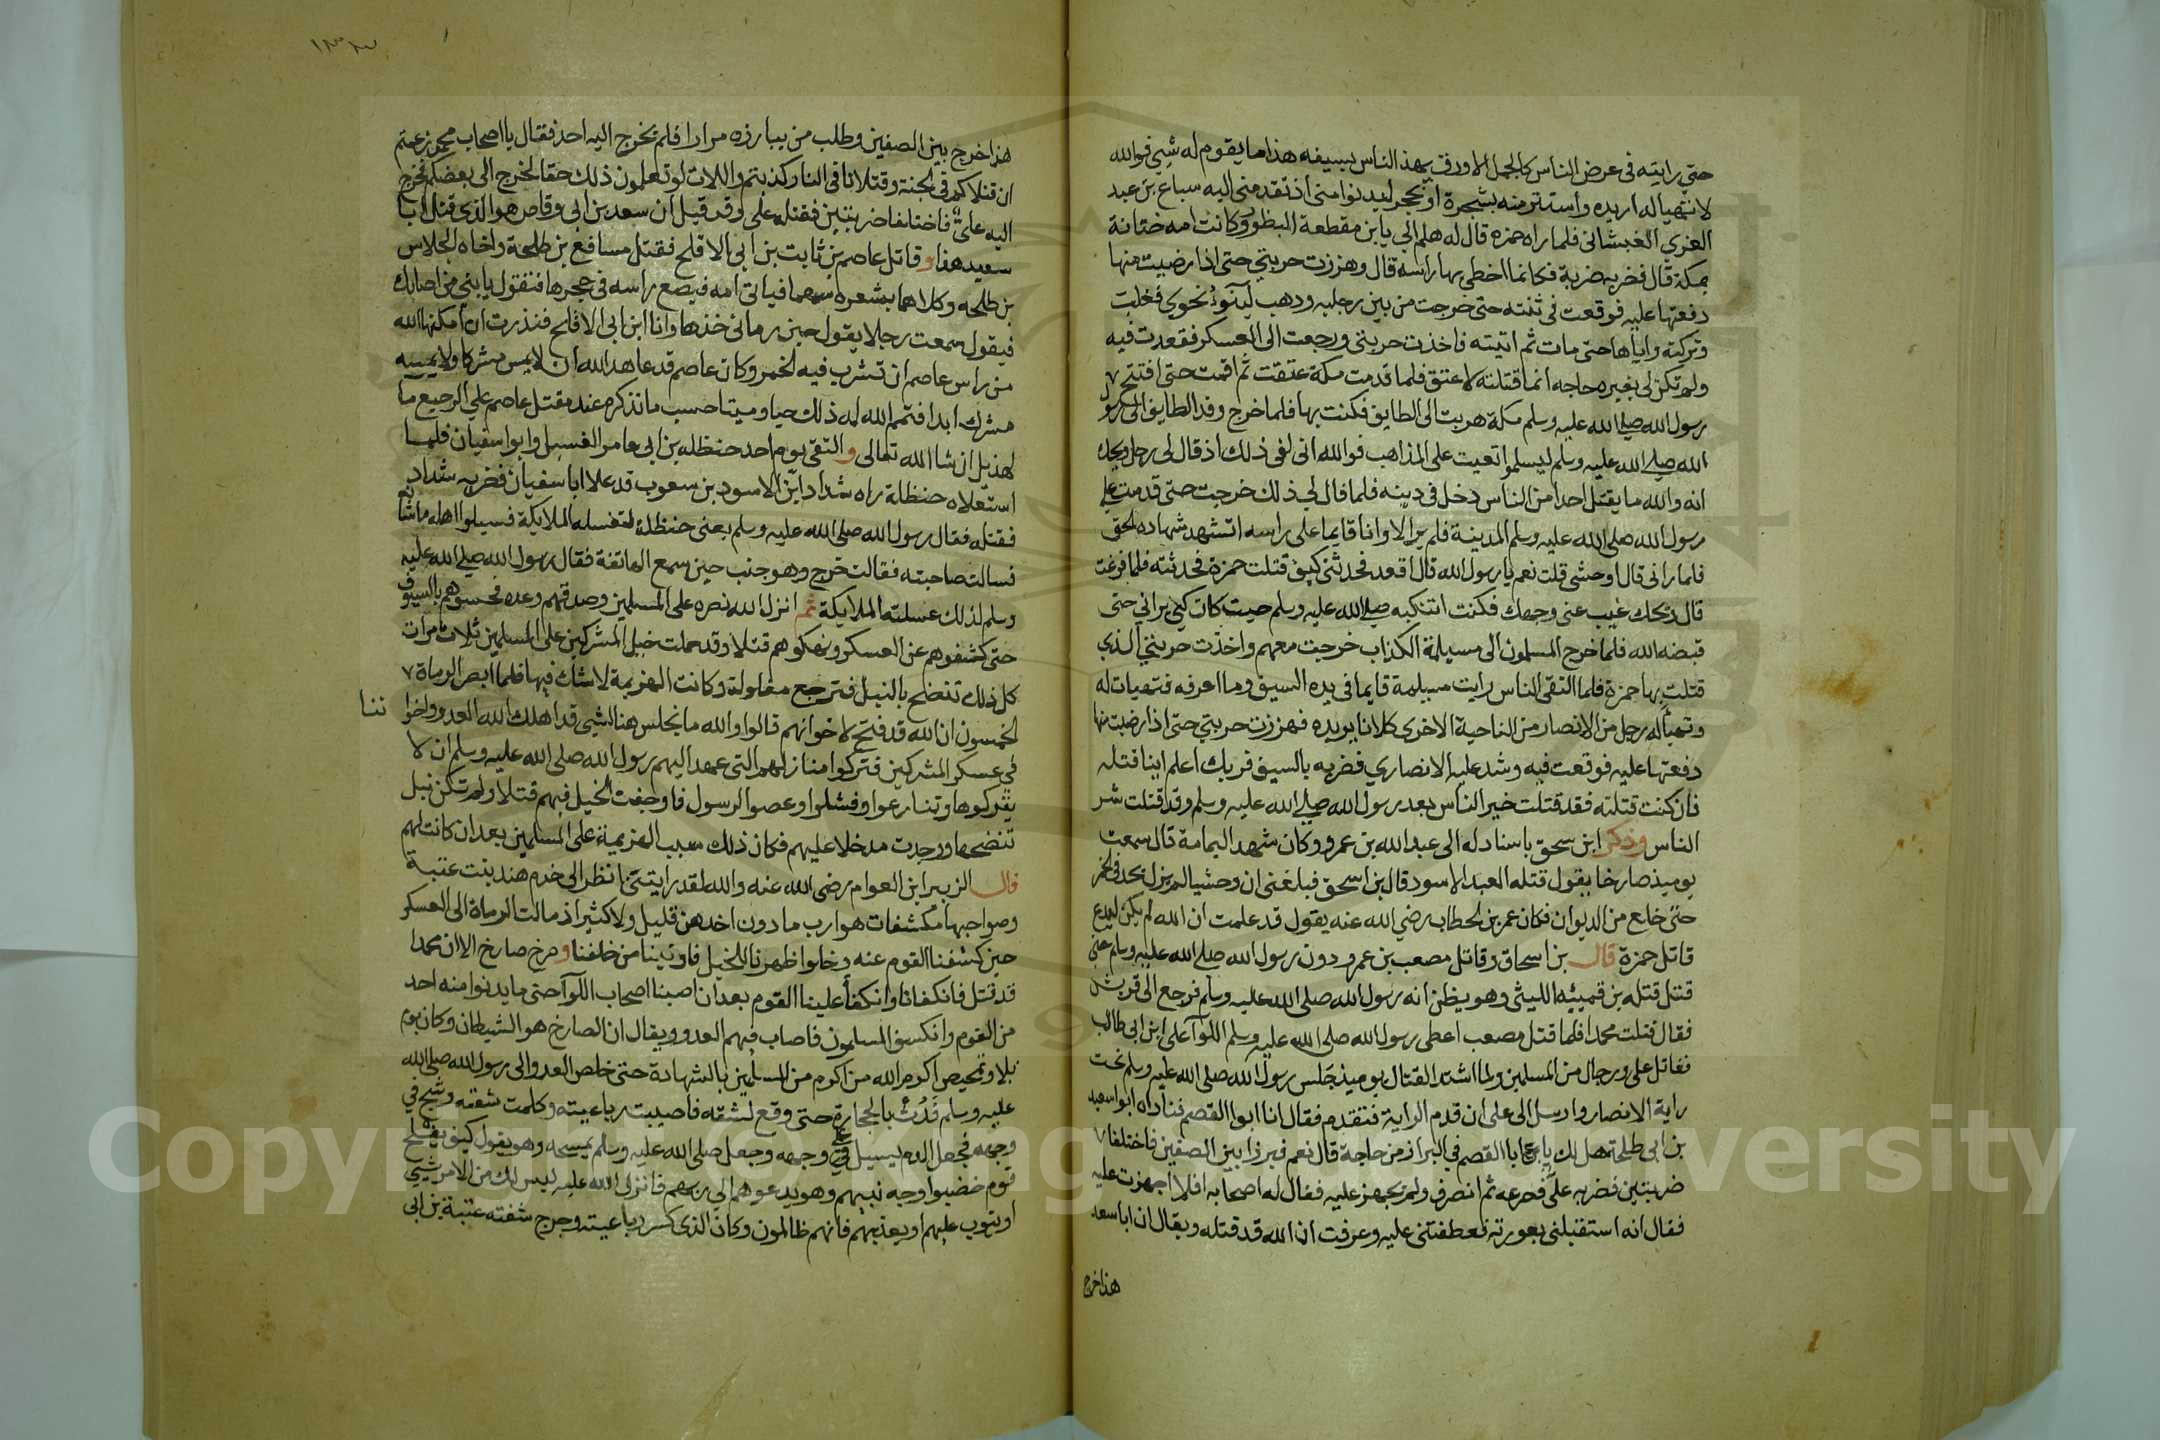 حتى رايته فى عرض الناس كالجمل الاورق يهذ الناس بسيفه هذا ما يقوم له شي فوالله
لاتهياله اريده واستتر منه بشجرة او بحجر ليدنوا منى اذ تقدمنى اليه سباع بن عبد
العزي الغبشانى فلما راه حمزه قال له هلم الى يابن مقطعة البظور وكانت امه ختانة
بمكة قال فضربه ضربة فكانما اخطى بها راسه قال وهززت حربتي حتى اذا رضيت منها
دفعتها عليه فوقعت فى ثنته حتى خرجت من بين رجليه وذهب لينوء نحوي فغلب
وتركته واياها حتى مات ثم اتيته فاخذت حربتى ورجعت الى العسكر فقعدت فيه
ولم تكن لى بغيره حاجه انما قتلته لاعتق فلما قدمت مكة عتقت ثم اقمت حتى افتتح
رسول الله صلى الله عليه وسلم مكة هربت الى الطايف فكنت بها فلما خرج وفد الطايف الى رسو
الله صلى الله عليه وسلم ليسلموا تعيت على المذاهب فوالله انى لفى ذلك اذ قال لى رجل ويحك
انه والله ما يقتل احدا من الناس دخل فى دينه فلما قال لى ذلك خرجت حتى قدمت على
رسول الله صلى الله عليه وسلم المدينة فلم ير الا وانا قايما على راسه اتشهد شهاده الحق
فلما رانى قال اوحشى قلت نعم يا رسول الله قال اقعد فحدثنى كيف قتلت حمزة فحدثته فلما فرغت
قال ويحك غيب عنى وجهك فكنت اتنكبه صلى الله عليه وسلم حيث كان كي يرانى حتى
قبضه الله فلما خرج المسلمون الى مسيلمة الكذاب خرجت معهم واخذت حربتي الذي
قتلت بها حمزة فلما التقى الناس رايت مسيلمة قايما فى يده السيف وما اعرفه فتهيات له
وتهياله رجل من الانصار من الناحية الاخرى كلانا يريده فهززت حربتي حتى اذا رضيت منها
دفعتها عليه فوقعت فيه وشد عليه الانصاري فضربه بالسيف فربك اعلم اينا قتله
فان كنت قتلته فقد قتلت خير الناس بعد رسول الله صلى الله عليه وسلم وقد قتلت شر
الناس وذكر ابن سحق باسناد له الى عبد الله بن عمرو وكان شهد اليمامة قال سمعت
يوميذ صارخا يقول قتله العبد الاسود قال بن اسحق فبلغنى ان وحشيا لم يزل يحد فى الخمر
حتى خلع من الديوان فكان عمر بن الخطاب رضي الله عنه يقول قد علمت ان الله لم يكن ليدع
قاتل حمزة قال بن اسحاق وقاتل مصعب بن عمير دون رسول الله صلى الله عليه وسلم حتى
قتل قتله بن قميئه الليثى وهو يظن انه رسول الله صلى الله عليه وسلم فرجع الى قريش
فقال قتلت محمدا فلما قتل مصعب اعطى رسول الله صلى الله عليه وسلم اللوآ على ابن ابى طالب
فقاتل على ورجال من المسلمين ولما اشتد القتال يوميذ جلس رسول الله صلى الله عليه وسلم تحت
راية الانصار وارسل الى على ان قدم الراية فتقدم فقال انا ابوا القصم فناداه ابوا سعيد
بن ابى طلحة هل لك يابا القصم في البراز من حاجة قال نعم فبرزا بين الصفين فاختلفا
ضربتين فضربه على فصرعه ثم انصرف ولم يجهز عليه فقال له اصحابه افلا اجهزت عليه
فقال انه استقبلنى بعورته فعطفتنى عليه وعرفت ان الله قد قتله ويقال ان ابا سعد
هذا خرج
هذا خرج بين الصفين وطلب من يبارزه مرارا فلم يخرج اليه احد فقال يا اصحاب محمد زعمتم
ان قتلاكم فى الجنة وقتلانا فى النار كذبتم واللات لو تعلمون ذلك حقا لخرج الى بعضكم فخرج
اليه على فاختلفا ضربتين فقتله على وقد قيل ان سعد بن ابى وقاص هو الذى قتل ابا
سعيد هذا وقاتل عاصم بن ثابت بن ابى الاقلح فقتل مسافع بن طلحة واخاه الجلاس
بن طلحه وكلاهما يشعره سهما فياتى امه فيضع راسه فى حجرها فتقول يا بني من اصابك
فيقول سمعت رجلا يقول حين رمانى خذها وانا ابن ابى الاقلح فنذرت ان امكنها الله
من راس عاصم ان تشرب فيه الخمر وكان عاصم قد عاهد الله ان لا يمس مشركا ولا يمسه
مشرك ابدا فتمم الله له ذلك حيا وميتا حسب ما نذكره عند مقتل عاصم على الرجيع ما
لهذيل ان شا الله تعالى والتقى يوم احد حنظله بن ابى عامر الغسيل وابوا سفيان فلما
استعلاه حنظلة راه شداد ابن الاسود بن شعوب قد علا ابا سفيان فضربه شداد
فقتله فقال رسول الله صلى الله عليه وسلم يعنى حنظلة لتغسله الملايكة فسيلوا اهله ما شانه
فسالت صاحبته فقالت خرج وهو جنب حين سمع الهاتفة فقال رسول الله صلى الله عليه
وسلم لذلك غسلته الملايكة ثم انزل الله نصره على المسلمين وصدقهم وعده فحسوهم بالسيوف
حتى كشفوهم عن العسكر ونهكوهم قتلا وقد حملت خيل المشركين على المسلمين ثلاث مرات
كل ذلك تنضح بالنبل فترجع مفلولة وكانت الهزيمة لا شك فيها فلما ابصر الرماة
الخمسون ان الله قد فتح لاخوانهم قالوا والله ما نجلس هنا لشي قد اهلك الله العدو واخوا ننا
في عسكر المشركين فتركوا منازلهم التى عهد اليهم رسول الله صلى الله عليه وسلم ان لا
يتركوها وتنازعوا وفشلوا وعصوا الرسول فاوجفت الخيل فيهم قتلا ولم تكن نبل
تنضحها ووجدت مدخلا عليهم فكان ذلك سبب الهزيمة على المسلمين بعد ان كانت لهم
قال الزبير ابن العوام رضى الله عنه والله لقد رايتنى انظر الى خدم هند بنت عتبة
وصواحبها مكشفات هوارب ما دون اخدهن قليل ولا كثير اذ مالت الرماة الى العسكر
حين كشفنا القوم عنه وخلوا ظهرنا للخيل فاوتينا من خلفنا وصرخ صارخ الا ان محمدا
قد قتل فانكفانا وانكفأ علينا القوم بعد ان اصبنا اصحاب اللوآ حتى ما يدنوا منه احد
من القوم وانكسف المسلمون فاصاب فيهم العدو ويقال ان الصارخ هو الشيطان وكان يوم
بلا وتمحيص اكرم الله من اكرم من المسلمين بالشهادة حتى خلص العدو الى رسول الله صلى الله
عليه وسلم فدث بالحجارة حتى وقع لشقه فاصيبت رباعيته وكلمت شفته وشج فى
وجهه فجعل الدم يسيل على وجهه وجعل صلى الله عليه وسلم يمسحه وهو يقول كيف يفلح
قوم خضبوا وجه نبيهم وهو يدعوهم الى ربهم فانزل الله عليه ليس لك من الامر شيي
او يتوب عليهم او يعذبهم فانهم ظالمون وكان الذى كسر رباعيته وجرح شفته عتبة بن ابى